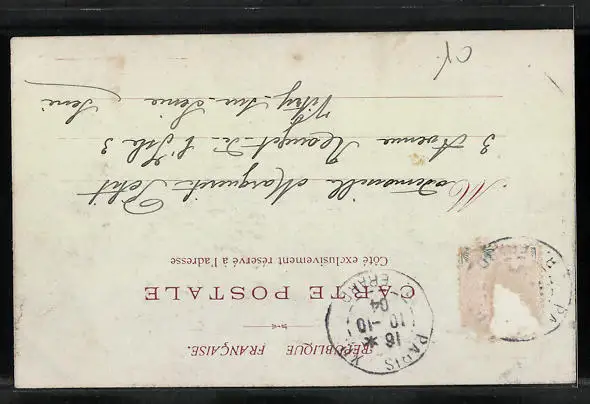 RÉPUBLIQUE FRANÇAISE.
CARTE POSTALE
Côté exclusivement réservé à l'adresse
PARIS
16 * 10-10 04
Mademoiselle Marguerite
3 Avenue de l'Isle 3
Vitry sur Seine Seine